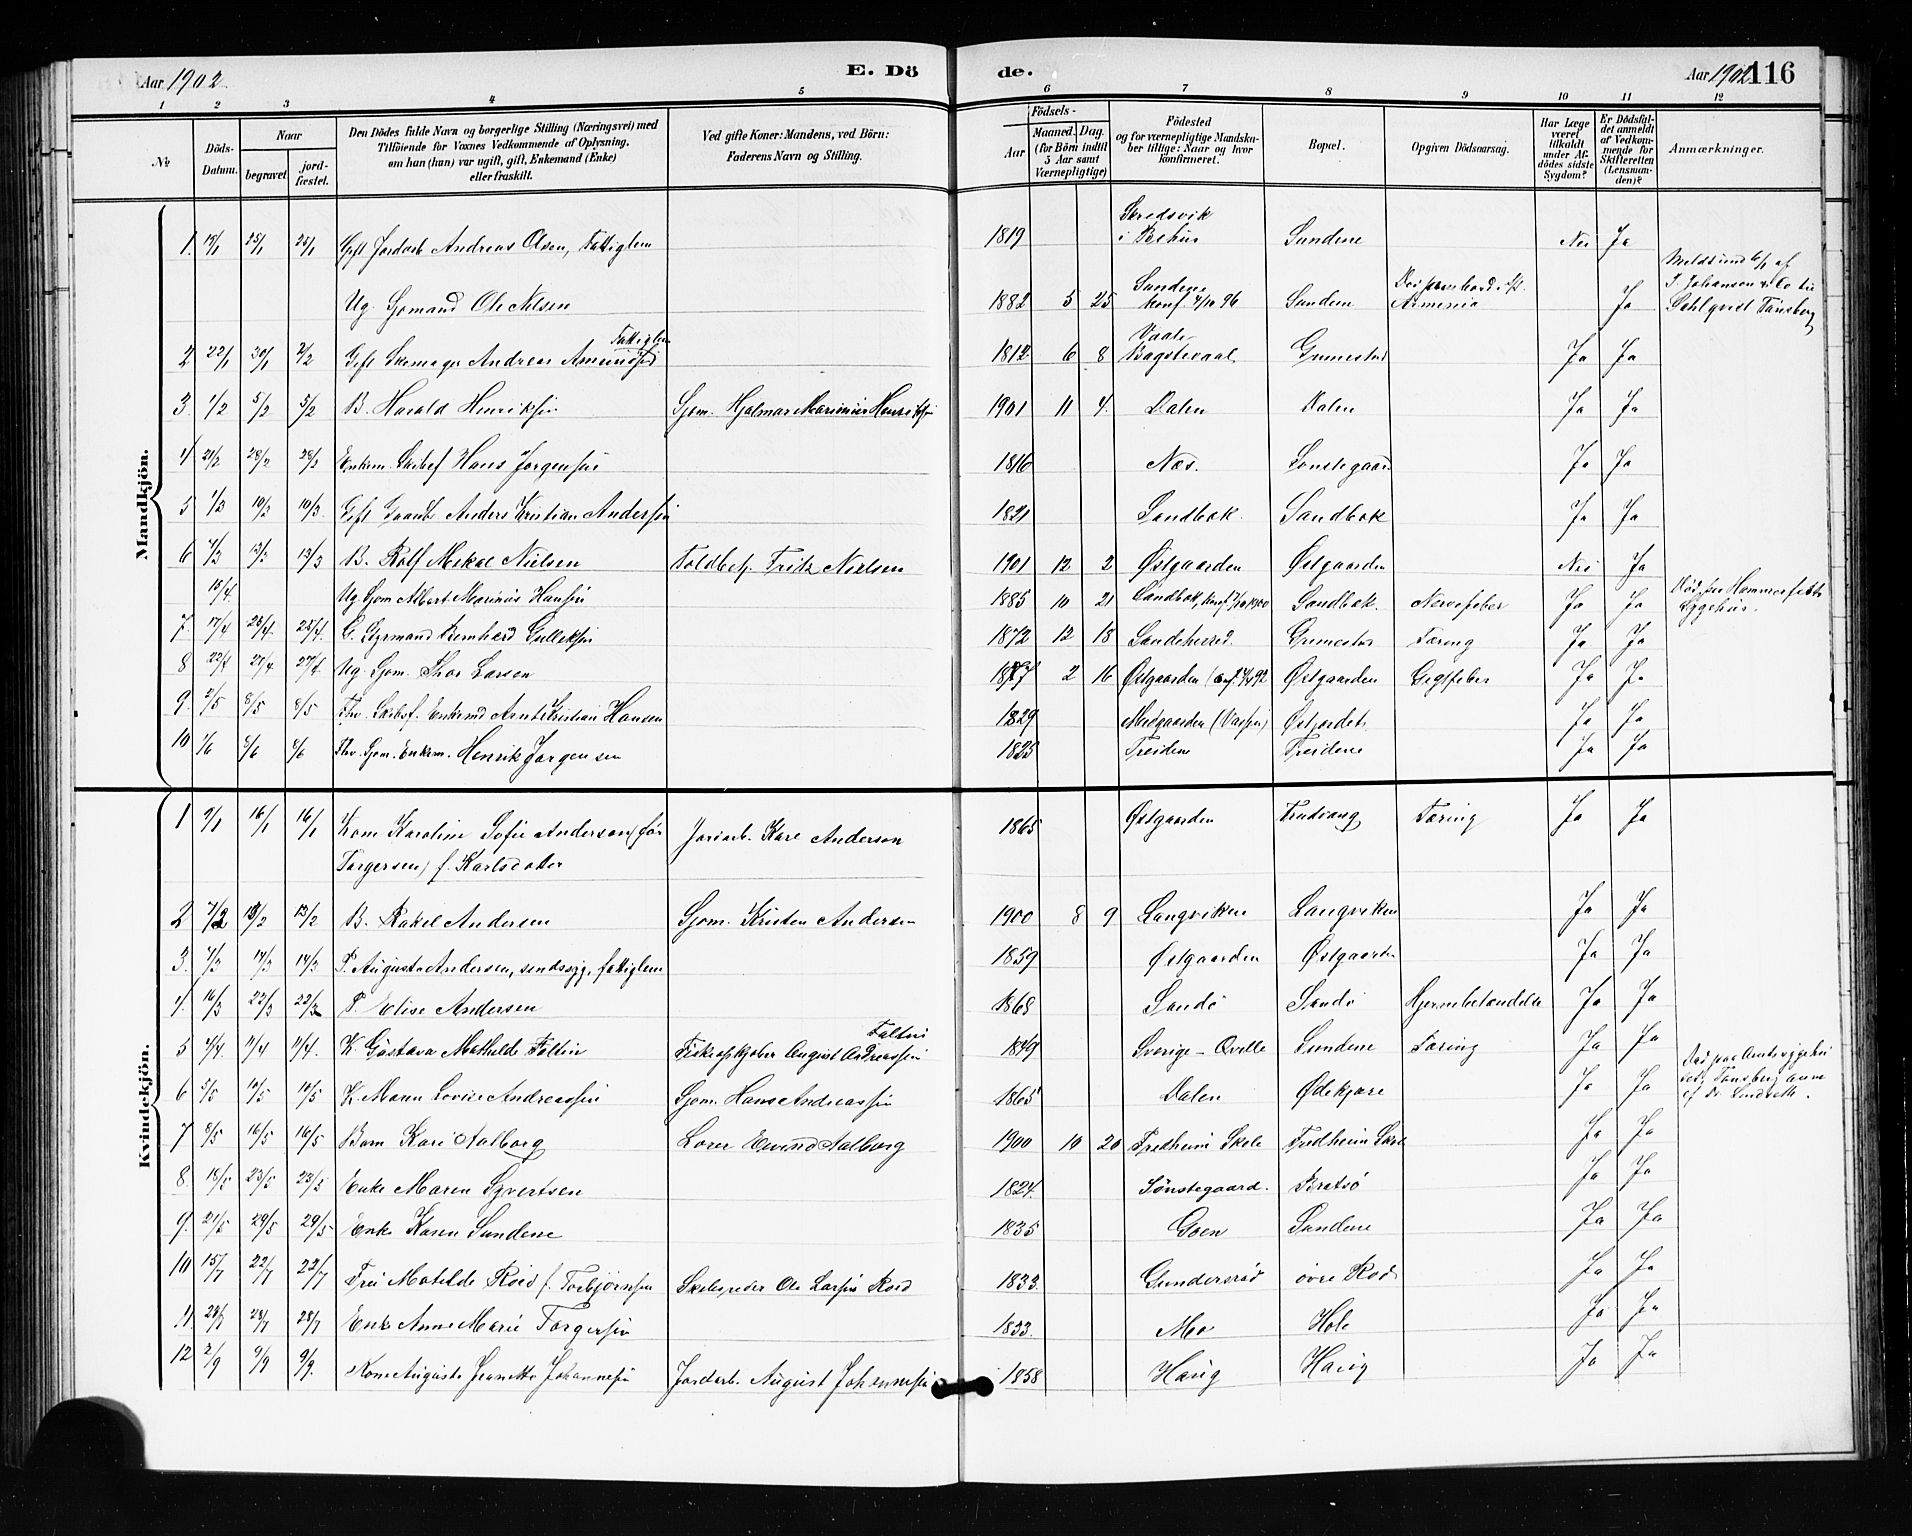 Aar 1902
E. Dö
de.
Aar 1902 116
1 2 3 4 5 6 7 8 9 10 11 12
No
Döds-Datum.
Naar
begravet
jord-fæstet.
Den Dödes fulde Navn og borgerlige Stilling (Næringsvei) med
Tilföiende för Voxnes Vedkommende af Oplysning,
om han (hun) var ugift, gift, Enkemand (Enke)
eller fraskilt.
Ved gifte Koner: Mandens, ved Börn:
Faderens Navn og Stilling.
Födsels-
Aar
Maaned. Dag.
(for Börn indtil
5 Aar samt
Værnepligtige)
Födested
og for værnepligtige Mandska-
ber tillige: Naar og hvor
konfirmeret.
Bopæl.
Opgiven Dödsaarsag.
Har Læge
været
tilkaldt
under Af-
dödes sidste
Sygdom?
Er Dödsfal-
det anmeldt
af Vedkom-
mende for
Skifteretten
(Lensman-
den)?
Anmærkninger.
Mandkjön.
1. 25/1 25/1 Gift Jordarb Andreas Olsen, Fattiglem 1819 Skredsvik i Bohus Sundene Nei Ja
Ug. Sjømand Ole Nilsen 1882 5 25 Sundene konf. 4/10 96 Sundene Armenia Ja
2 22/1 30/1 2/2 Gift Skomager Andreas Amundsen Fattiglem 1812 6 8 Vaale Grimestad Ja Ja
3 1/2 5/2 5/2 B. Harald Henriksen Sjøm. Hjalmar Marinius Henriksen 1901 11 4. Dalen Dalen Ja Ja
4 21/2 28/2 28/2 Enkem. Skibsf Hans Jørgensen 1816 Næs. Sønstegaard Ja Ja
5 1/3 10/3 10/3 Gift Gaardb Anders Kristian Andersen 1821 Sandbæk. Sandbæk Ja Ja
6 4/3 13/3 13/3 B. Rolf Mekal Nielsen Toldbetj. Fritz Nielsen 1901 12 2 Østgaarden Østgaarden Nei Ja
15/4 Ug. Sjøm Albert Marinius Hansen 1885 10 21 Sandbæk, konf. 7/10 1900 Sandbæk. Nervefeber Ja Ja Død paa Hammerfests Sygehus.
7. 17/4 23/4. 23/4. G. Styrmand Bernhard Gulliksen 1872 12 18 Sandeherred Grimestad Tæring Ja Ja
8 22/4 27/4 27/4 Ug. Sjøm. Thor Larsen 1877 2 16 Østgaarden (conf. 92 Østgaarden Gigtfeber Ja Ja
9. 2/5 8/5 8/5 Fhv. Skibsf. Enkemd Arnt Kristian Hansen 1829 Midgaarden Østjordet Ja Ja
10 1/6 6/6 6/6 Fhv. Sjøm. Enkem. Henrik Jørgensen 1825 Treidene Treidene Ja Ja
Kvindekjön.
1 9/1 16/1 16/1 Kone Karoline Sofie Anderson (før Torgersen) f. Karlsdatter Jordarb. Karl Anderson 1865 Østgaarden Tæring Ja Ja
2 7/2 13/2 13/2 B. Rakel Andersen Sjøm. Kristen Andersen 1900 8 9 Langviken Langviken Ja Ja
3. 7/3 14/3 14/3 P. Augusta Andersen, sindssyg, fattiglem 1859 Østgaarden Østgaarden Ja Ja
4. 16/3 22/3 22/3 P. Elise Andersen 1868 Sandø Sandø Hjernebetændelse Ja Ja
5 4/4. 11/4 11/4. K. Gustava Mathilde Faltin Fiskeopkjøber August Andreassen Faltin 1849 Sverige - Qville Sundene Tæring Ja Ja
6 5/5 10/5 10/5 K. Maren Lovise Andreassen Sjøm. Hans Andreassen 1865 Dalen Ødekjære Ja Ja Død paa Amtssygehuset i Tønsberg
7 8/5 16/5 16/5 Barn Kari Aalborg Lærer Eivind Aalborg 1900 10 20 Fredheim Skole Fredheim Skol Ja Ja
8 18/5 23/5 23/5 Enke Maren Syvertsen 1824 Sønstegaard. Bratsø Ja Ja
9. 21/5 29/5 29/5 Enke Karen Sundene 1835 Goen Sundene Ja Ja
10 15/7 22/7 22/7 Fru Matilde Roed f. Torbjørnsen Skibsreder Ole Larsen Roed 1833. Gundersrød øvre Rød Ja Ja
11. 28/7 28/7 Enke Anne Marie Torgersen 1833. Mo Hole Ja Ja
12 2/9 9/9 9/9. Kone Augusta Jeanette Johannesen Jordarb. August Johannesen 1858 Haug Haug Ja Ja